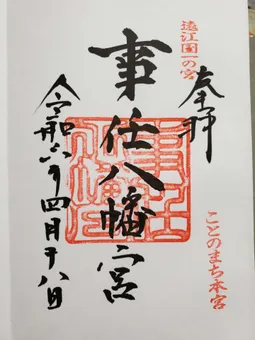 遠江国一の宮
奉拝
事任八幡宮
ことのまち本宮
令和六年四月十八日